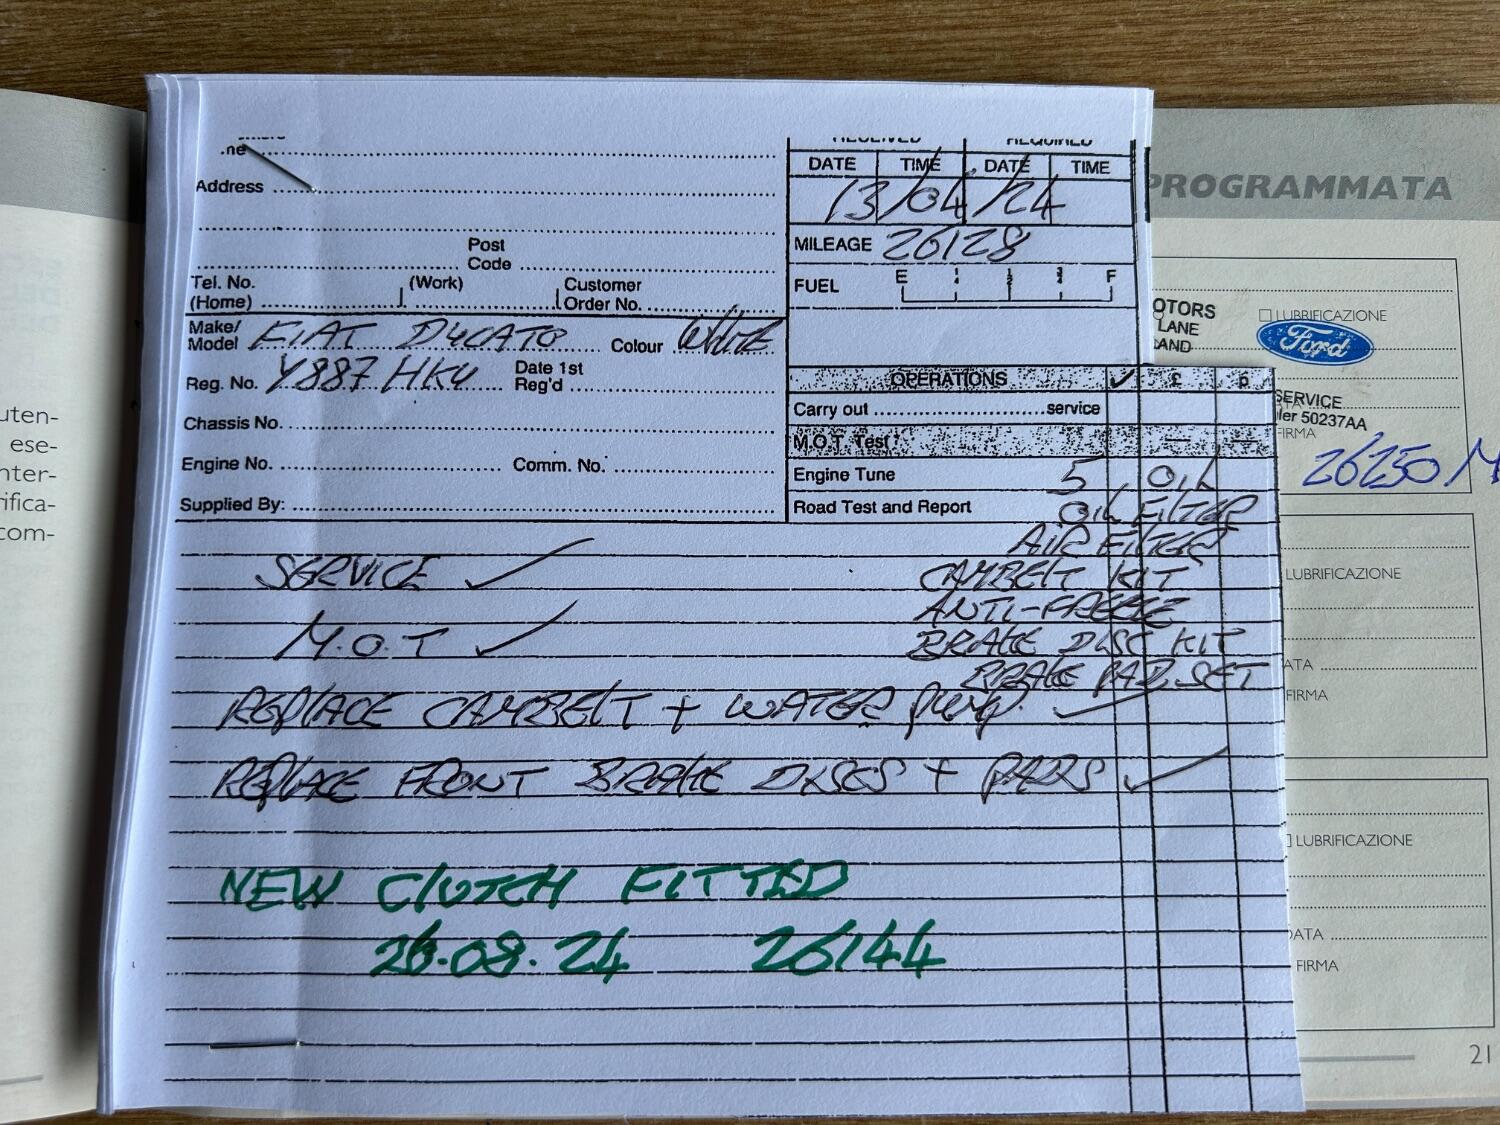 PROGRAMMATA
DATE TIME DATE TIME
13/04/24
Address
MILEAGE 26128
Post
Code
FUEL E F
Tel. No.
(Home)
(Work)
Customer
Order No.
Make/
Model FIAT DUCATO Colour WHITE
Reg. No. Y887 HKU Date 1st
Reg'd
Chassis No.
Engine No. Comm. No.
Supplied By:
OPERATIONS ✓ £ p
Carry out service
M.O.T. Test
Engine Tune 5 OIL
Road Test and Report OIL FILTER
AIR FILTER
CAMBELT KIT
ANTI-FREEZE
BRAKE DISC KIT
BRAKE PAD SET
SERVICE ✓
M.O.T ✓
REPLACE CAMBELT + WATER PUMP ✓
REPLACE FRONT BRAKE DISCS + PADS ✓
NEW CLUTCH FITTED
26.08.24 26144
uten-
ese-
nter-
rifica-
com-
OTORS
LANE
AND
LUBRIFICAZIONE
Ford
SERVICE
ler 50237AA
FIRMA
26250 M
LUBRIFICAZIONE
ATA
FIRMA
LUBRIFICAZIONE
DATA
FIRMA
21